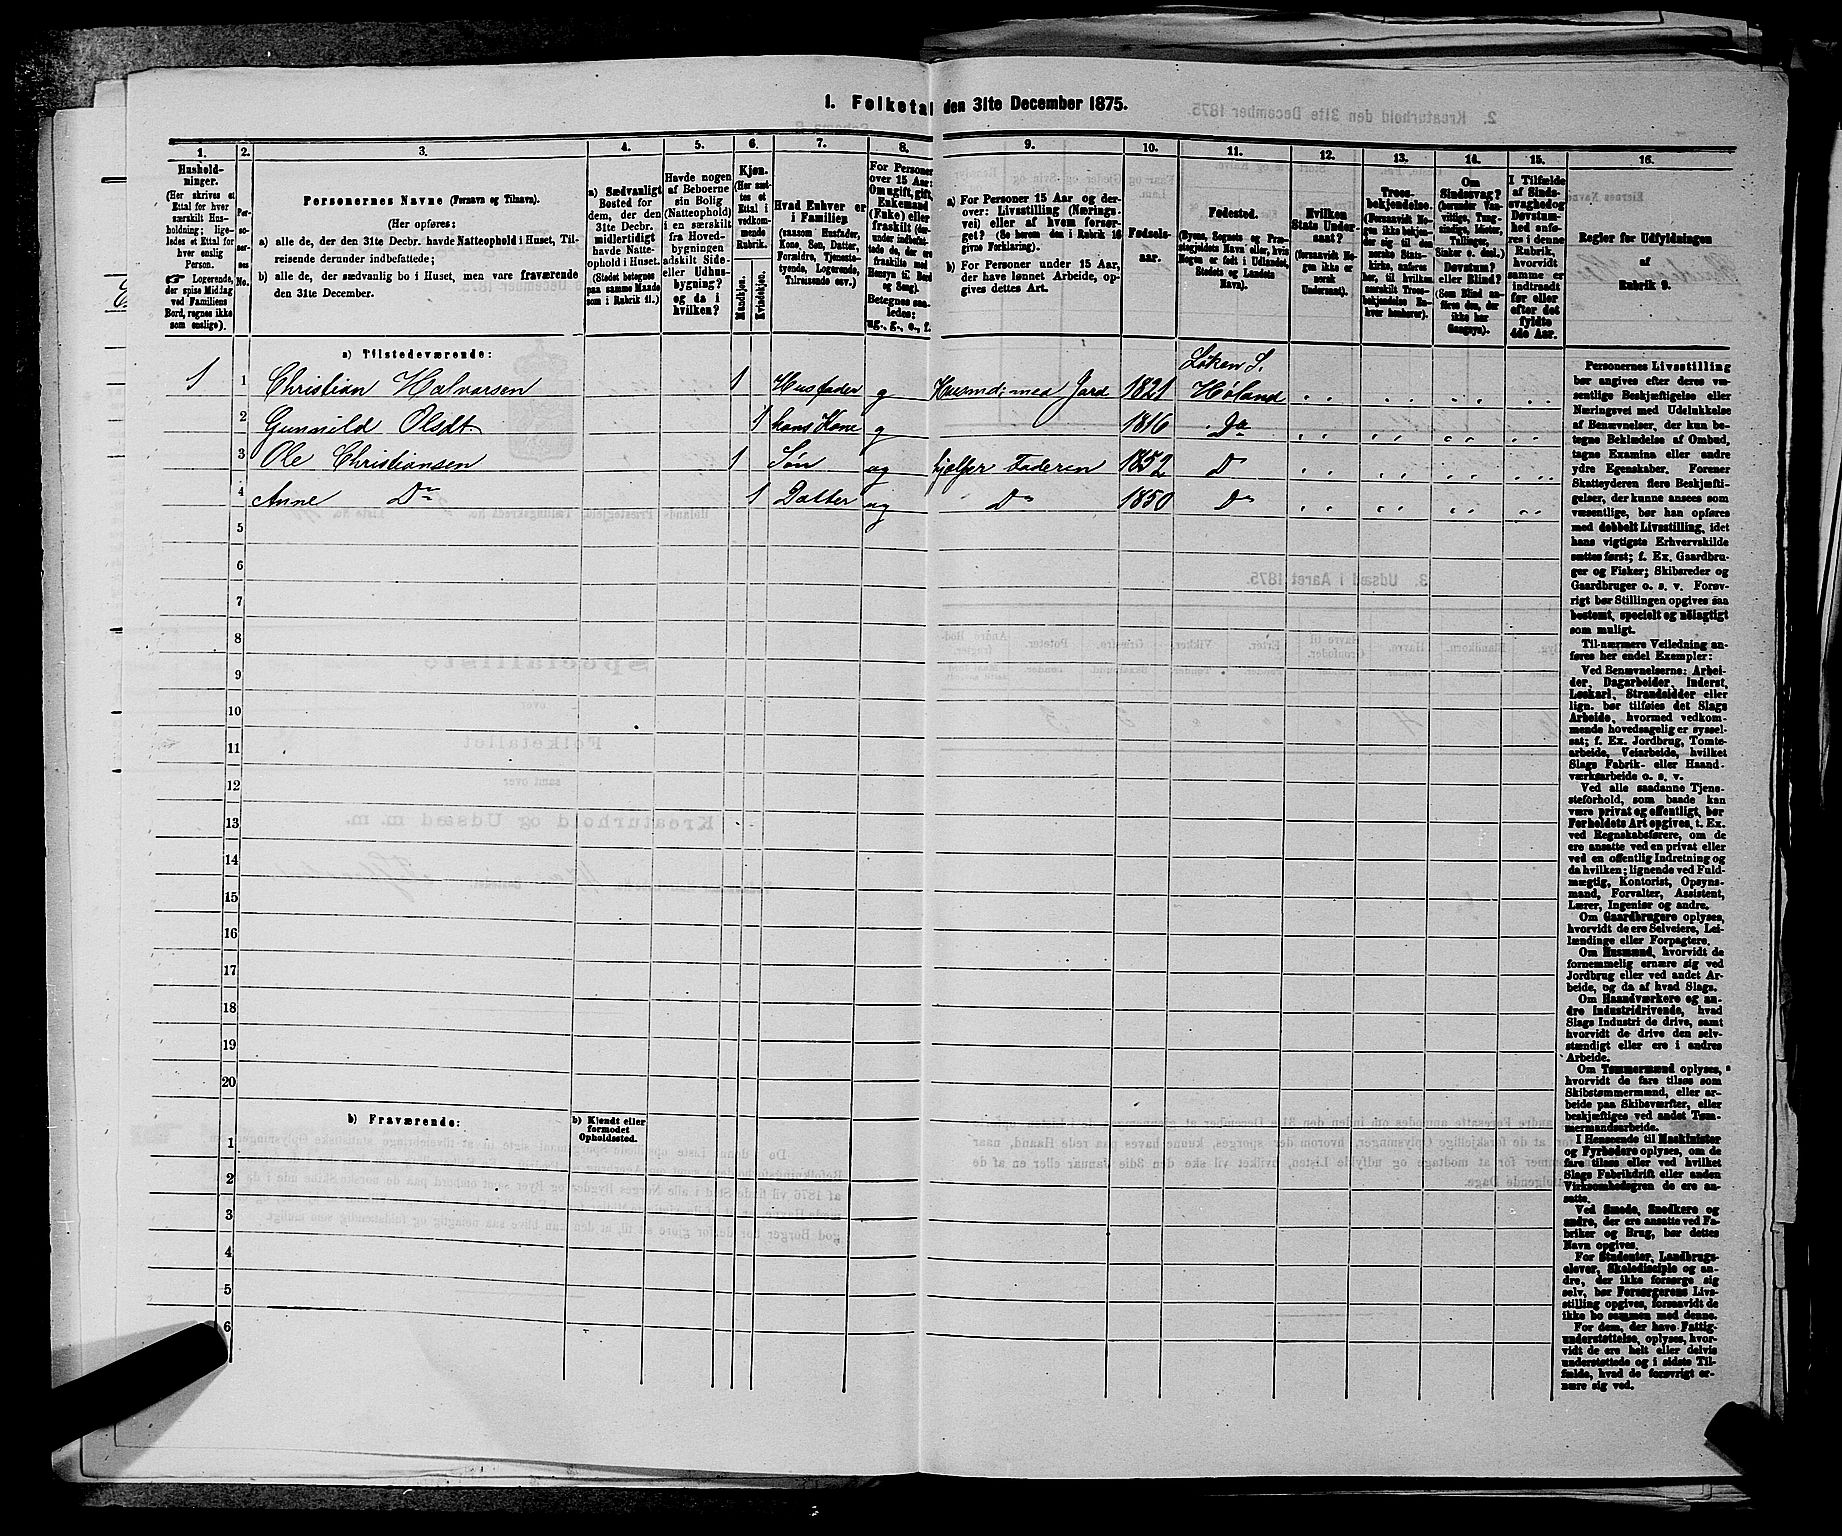 1. Folketal den 31te December 1875.
1. 2. 3. 4. 5. 6. 7. 8. 9. 10. 11. 12. 13. 14. 15. 16.
Husholdninger.
(Her skrives et
Ettal for hver
særskilt Husholdning;
ligeledes et Ettal for
hver enslig
Person.
☞ Logerende,
der spise Middag
ved Familiens
Bord, regnes ikke
som enslige).
Personernes No.
Personernes Navne (Fornavn og Tilnavn).
(Her opføres:
a) alle de, der den 31te Decbr. havde Natteophold i Huset, Tilreisende derunder indbefattede;
b) alle de, der sædvanlig bo i Huset, men vare fraværende
den 31te December.
a) Sædvanligt
Bosted for
dem, der den
31te Decbr.
midlertidigt
havde Natteophold i Huset.
(Stedet betegnes
paa samme Maade
som i Rubrik 11.)
Havde nogen
af Beboerne
sin Bolig
(Natteophold)
i en særskilt
fra Hovedbygningen
adskilt Side-
eller Udhusbygning?
og da i
hvilken?
Kjøn.
(Her sættes et
Ettal i
vedkommende
Rubrik.
Mandkjøn.
Kvindekjøn.
Hvad Enhver er
i Familien
(saasom Husfader,
Kone, Søn, Datter,
Forældre, Tjenestetyende, Logerende,
Tilreisende osv.)
For Personer
over 15 Aar:
Om ugift, gift,
Enkemand
(Enke) eller
fraskilt
Betegnes saaledes:
ug., g., e., f.
a) For Personer 15 Aar og derover: Livsstilling (Næringsvei) eller af hvem forsørget? (Se herom den i Rubrik 16
givne Forklaring).
b) For Personer under 15 Aar,
der have lønnet Arbeide, opgives dettes Art.
Fødselsaar.
Fødested.
(Byens, Sognets og Præstegjeldets Navn eller, hvis
Nogen er født i Udlandet,
Stedets og Landets
Navn).
Hvilken
Stats Undersaat?
(forsaavidt Nogen ikke er
norsk
Undersaat).
Troesbekjendelse.
(Forsaavidt Nogen ikke bekjender sig til den
norske Statskirke, anføres
her, til hvilken
særskilt Troesbekjendelse Enhver henhører).
Om
Sindssvag?
Døvstum?
eller Blind?
I Tilfælde
af Sindssvaghed og
Døvstumhed anføres i denne
Rubrik,
hvorvidt
samme er
indtraadt
før eller
efter det
fyldte
4de Aar.
Regler for Udfyldningen
af
Rubrik 9.
a) Tilstedeværende:
Løken S.
1 1 Christian Halvorsen 1 Husfader g Husmd: med Jord 1821 Høland
2 Gunnild Olsdt 1 hans Kone g 1816 Do
3 Ole Christiansen 1 Søn ug hjelper Faderen 1852 D
4 Anne Do 1 Datter ug Do 1850 Do
5
6
7
8
9
10
11
12
13
14
15
16
17
18
19
20
b) Fraværende:
b) Kjendt eller
formodet
Opholdssted.
1
2
3
4
5
6
Personernes Livsstilling
bør angives efter deres væsentlige Beskjæftigelse eller
Næringsvei med Udelukkelse
af Benævnelser, der kun betegne Beklædelse af Ombud,
tagne Examina eller andre
ydre Egenskaber. Forener
Skatteyderen flere Beskjæftigelser, der kunne ansees som
væsentlige, bør han opføres
med dobbelt Livsstilling, idet
hans vigtigste Erhvervskilde
sættes først; f. Ex. Gaardbruger og Fisker; Skibsreder og
Gaardbruger o. s. v. Forøvrigt bør Stillingen opgives saa
bestemt, specielt og nøiagtigt
som muligt.
Til nærmere Veiledning anføres her endel Exempler:
Ved Benævnelserne: Arbeider, Dagarbeider, Inderst,
Løskarl, Strandsidder eller
lign. bør tilføies det Slags
Arbeide, hvormed vedkommende hovedsagelig er sysselsat; f. Ex. Jordbrug, Tomtearbeide, Veiarbeide, hvilket
Slags Fabrik- eller Haandværksarbeide o. s. v.
Ved alle saadanne Tjenesteforhold, som baade kan
være privat og offentligt, bør
Forholdets Art opgives, t. Ex.
ved Regnskabsførere, om de
ere ansatte ved en privat eller
ved en offentlig Indretning og
da hvilken; lignende ved Fuldmægtig, Kontorist, Opsynsmand, Forvalter, Assistent,
Lærer, Ingeniør og andre.
Om Gaardbrugere oplyses,
hvorvidt de ere Selveiere, Leilændinge eller Forpagtere.
Om Husmænd, hvorvidt de
fornemmelig ernære sig ved
Jordbrug eller ved andet Arbeide, og da af hvad Slags.
Om Haandværkere og andre Industridrivende, hvad
Slags Industri de drive, samt
hvorvidt de drive den selvstændigt eller ere i andres
Arbeide.
Om Tømmermænd oplyses,
hvorvidt de fare tilsøs som
Skibstømmermænd, eller arbeide paa Skibsværfter, eller
beskjæftiges ved andet Tømmermandsarbeide.
I Henseende til Maskinister
og Fyrbødere oplyses, om de
fare tilsøs eller ved hvilket
Slags Fabrikdrift eller anden
Virksomhedsgren de ere ansatte.
Ved Smede, Snedkere og
andre, der ere ansatte ved Fabriker og Brug, bør dettes
Navn opgives.
For Studenter, Landbrugselever, Skoledisciple og andre, der ikke forsørge sig
selv, bør Forsørgerens Livsstilling opgives, forsaavidt de
ikke bo sammen med denne.
For dem, der have Fattigunderstøttelse, oplyses, hvorvidt de ere helt eller delvis
understøttede og i sidste Tilfælde, hvad de forøvrigt ernære sig ved.